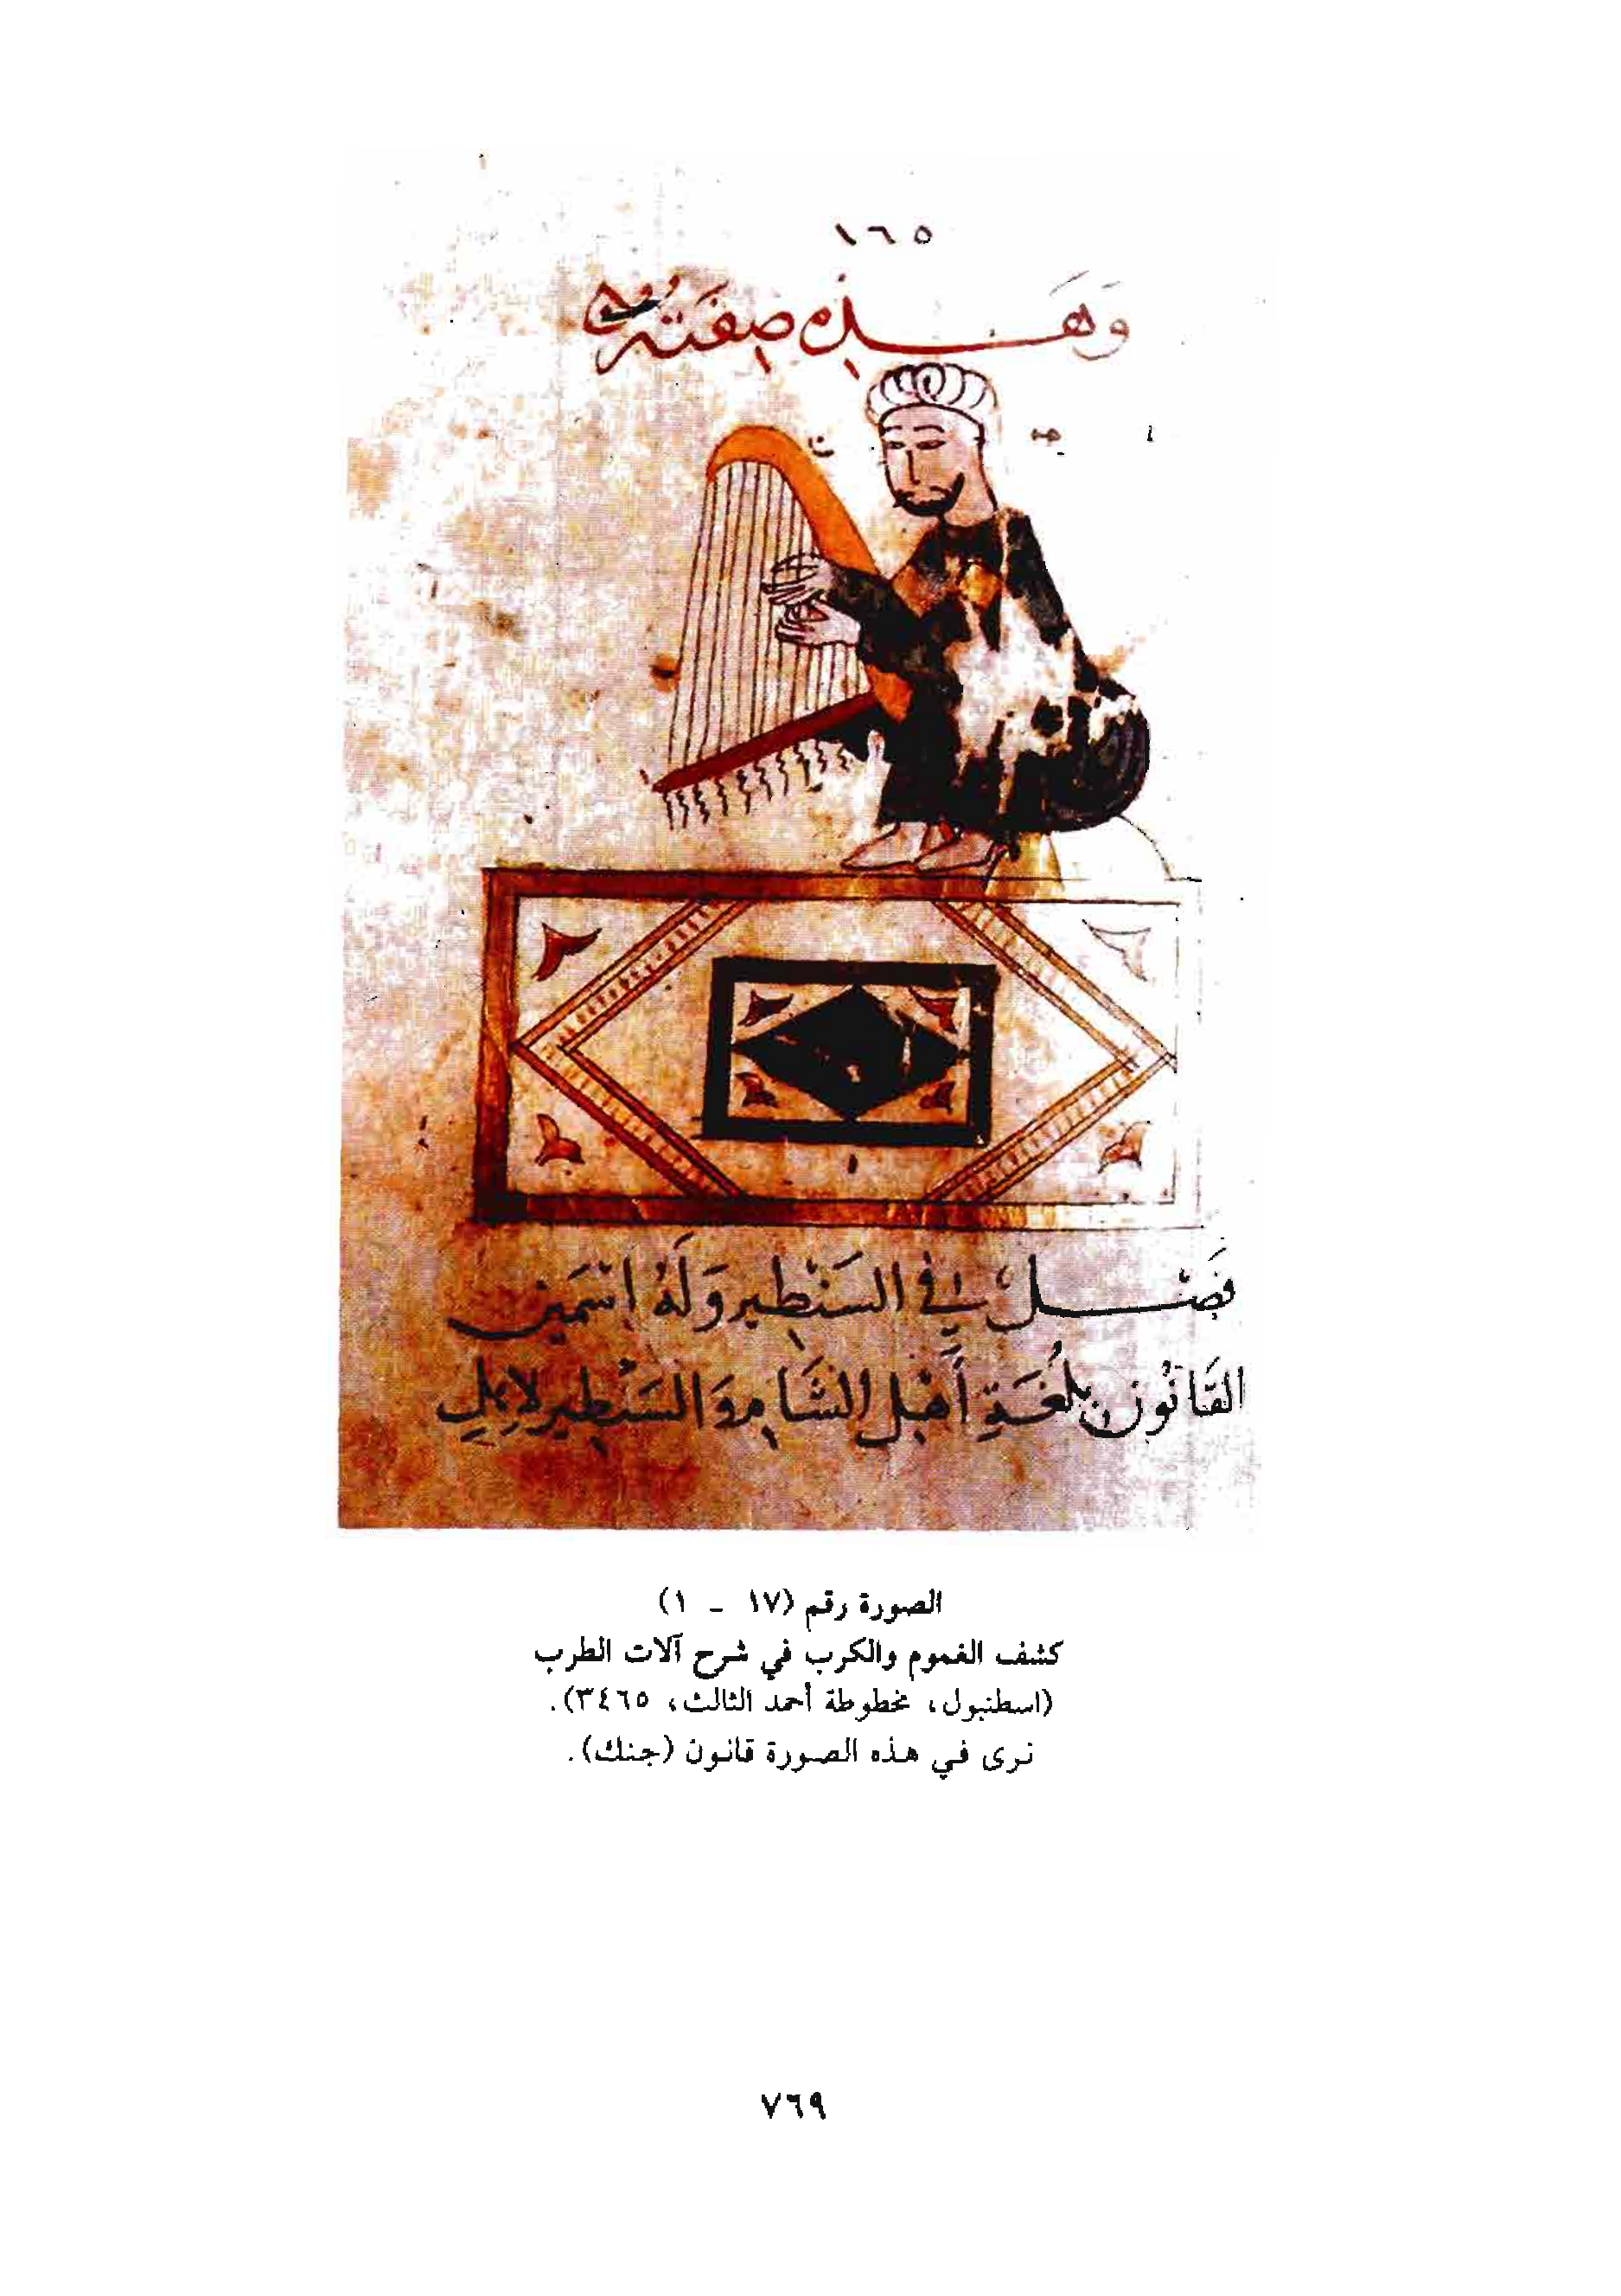 ١٦٥
وَهَـذِهِ صِفَتُهُ
فَصْـلٌ فِي السَنْطِير وَلَهُ اسْمَين
القَانُون بِلُغَةِ أَهْلِ الشَامِ وَالسَنْطِير لِأهْلِ
الصورة رقم (١٧ - ١)
كشف الغموم والكرب في شرح آلات الطرب
(اسطنبول، مخطوطة أحمد الثالث، ٣٤٦٥).
نرى في هذه الصورة قانون (جنك).
٧٦٩